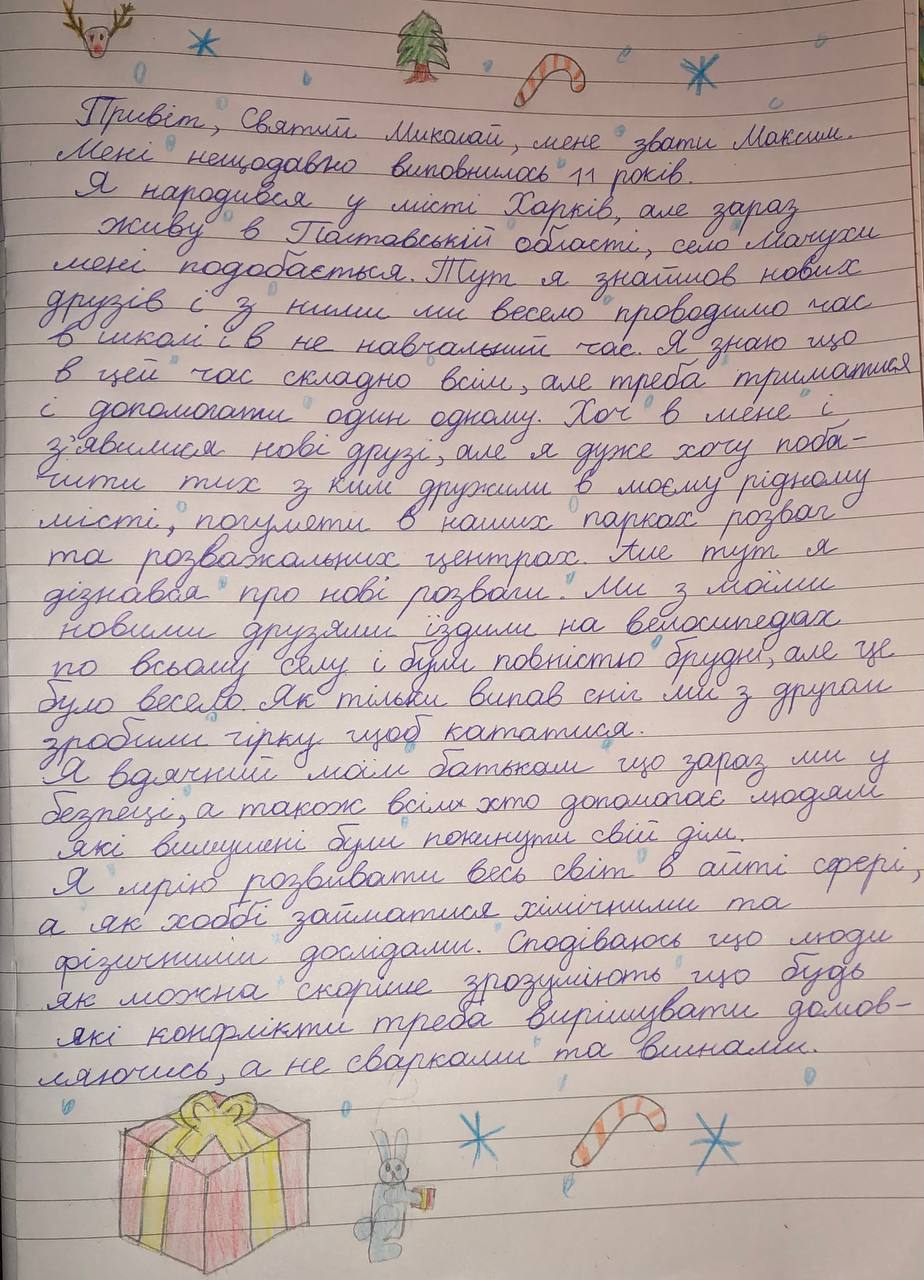 Привіт, Святий Миколай, мене звати Максим.
Мені нещодавно виповнилось 11 років.
Я народився у місті Харків, але зараз
живу в Полтавській області, село Мачухи
мені подобається. Тут я знайшов нових
друзів і з ними ми весело проводимо час
в школі і в не навчальний час. Я знаю що
в цей час складно всім, але треба триматися
і допомогати один одному. Хоч в мене і
з'явилися нові друзі, але я дуже хочу поба-
чити тих з ким дружили в моєму рідному
місті, погуляти в наших парках розваг
та розважальних центрах. Але тут я
дізнався про нові розваги. Ми з моїми
новими друзями їздили на велосипедах
по всьому селу і були повністю брудні, але це
було весело. Як тільки випав сніг ми з другом
зробили гірку щоб кататися.
Я вдячний моїм батькам що зараз ми у
безпеці, а також всім хто допомогає людям
які вимушені були покинути свій дім.
Я мрію розвивати весь світ в айті сфері,
а як хоббі займатися хімічними та
фізичними дослідами. Сподіваюсь що люди
як можна скоріше зрозуміють що будь
які конфлікти треба вирішувати домов-
ляючись, а не сварками та винами.